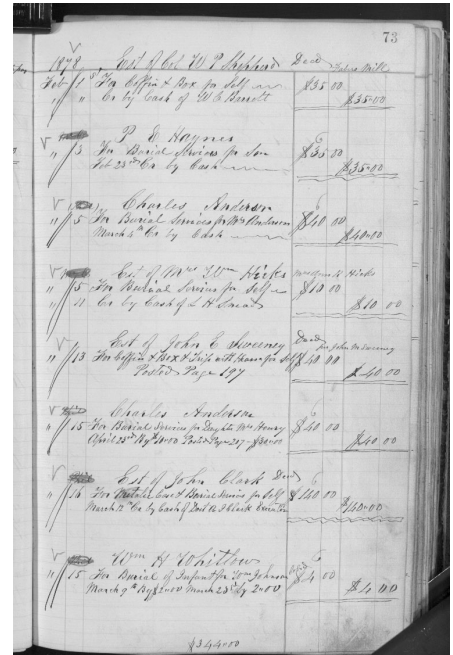 73
1878 Est of Col W P Shepherd Dead
Feb 1st For Coffin & Box for Self $35 00
" " Cr by Cash of W C Barrett $35=00
P E Haynes
" 3 For Burial Services for Son $35 00
Feb 23d Cr by Cash $35=00
Charles Anderson
" 5 For Burial Services for Mrs Anderson $40 00
March 4th Cr by Cash $40=00
Est of Mrs Wm Hicks Mrs Wm H Hicks
" 5 For Burial Services for Self $10 00
" 11 Cr by Cash of L H $10 00
Est of John E Sweeney Dead
" 13 For Coffin & Box & Trip with hearse for Self $40 00
Posted Page 197 $40 00
Charles Anderson
" 15 For Burial Services for Daughter Mrs Henry $40 00
April 23d By $10=00 Posted Page 217 - $30=00 $40 00
Est of John Clark Dead
" 16 For Metalic Case & Burial Services for Self $140 00
March 12th Cr by Cash of J Clark Executor $140=00
Wm H Whitlow
" 15 For Burial of Infant for Wm Johnson $4 00
March 9th By $2=00 March 23d by 2=00 $4 00
$344=00